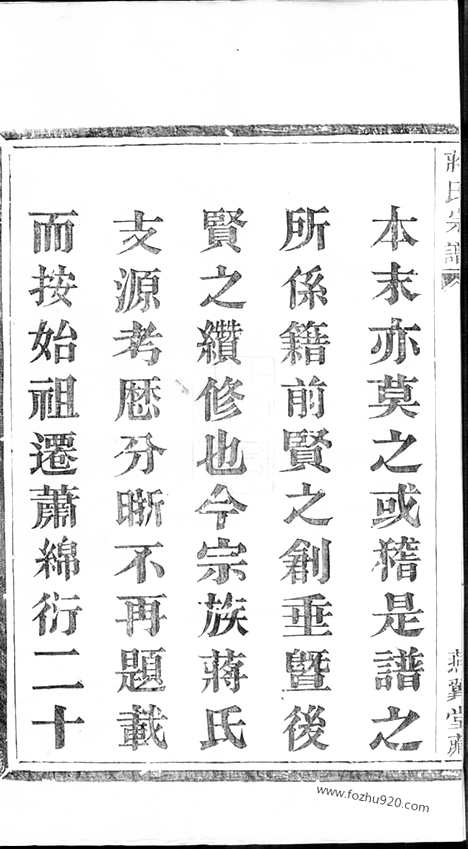 蔣氏宗譜
燕翼堂藏
本末亦莫之或稽是譜之
所係籍前賢之創垂曁後
賢之纘修也今宗族蔣氏
支源考歷分晰不再題載
而按始祖遷蕭綿衍二十
www.fozhu920.com